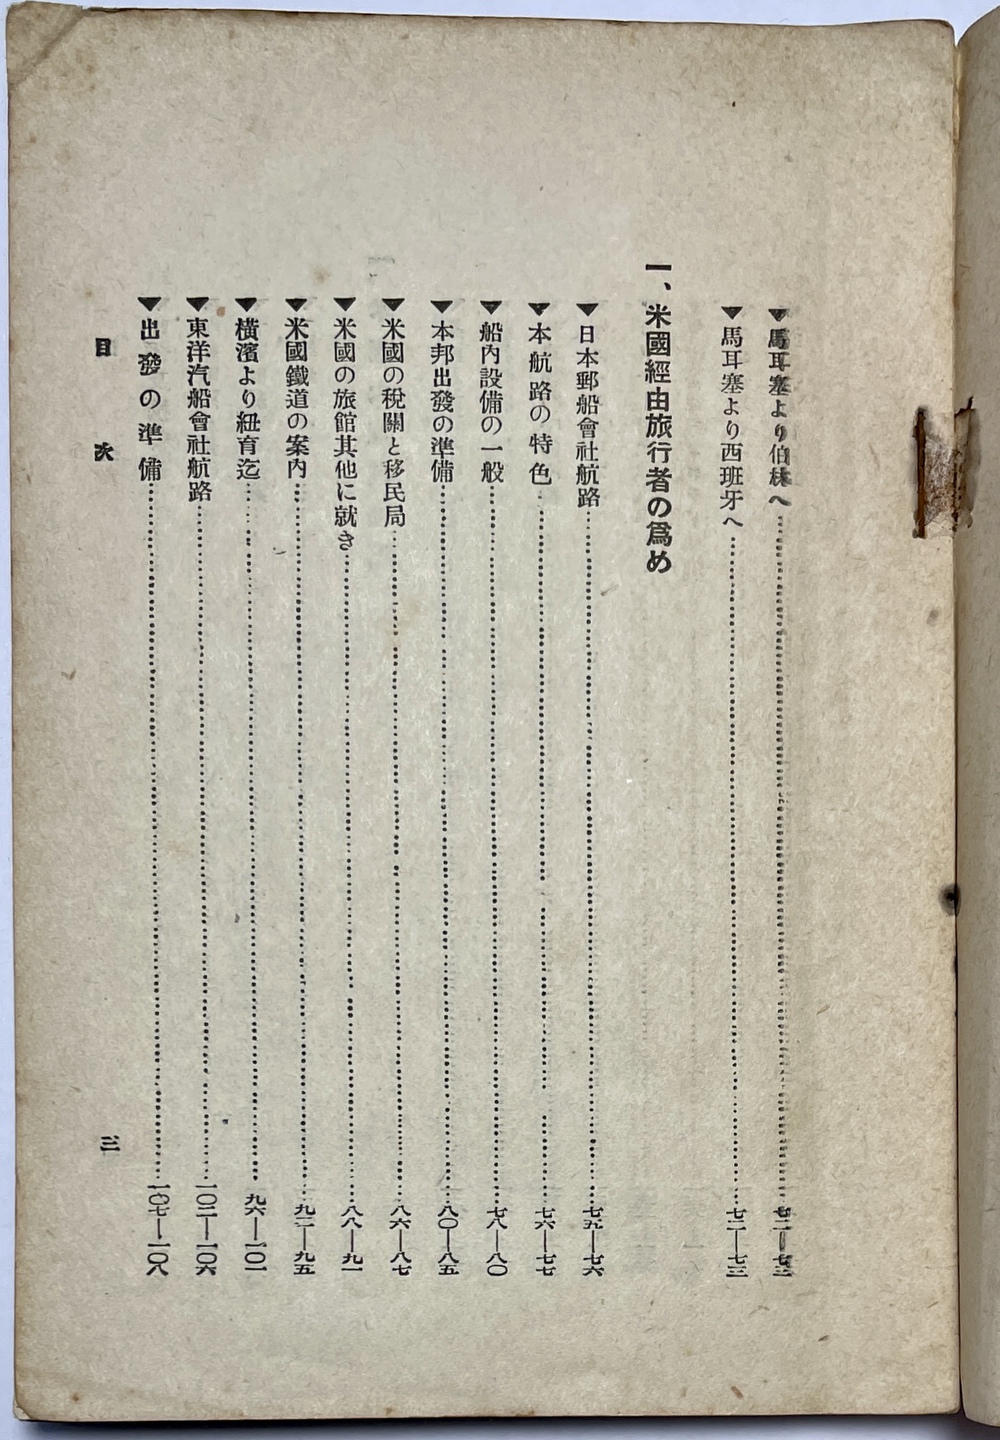 ▼馬耳塞より伯林へ……七二—七三
▼馬耳塞より西班牙へ……七二—七三
一、米國經由旅行者の爲め
▼日本郵船會社航路……七五—七六
▼本航路の特色……七六—七七
▼船内設備の一般……七八—八〇
▼本邦出發の準備……八〇—八五
▼米國の稅關と移民局……八六—八七
▼米國の旅館其他に就き……八八—九一
▼米國鐵道の案内……九二—九五
▼橫濱より紐育迄……九六—一〇一
▼東洋汽船會社航路……一〇二—一〇六
▼出發の準備……一〇七—一〇八
目次
三